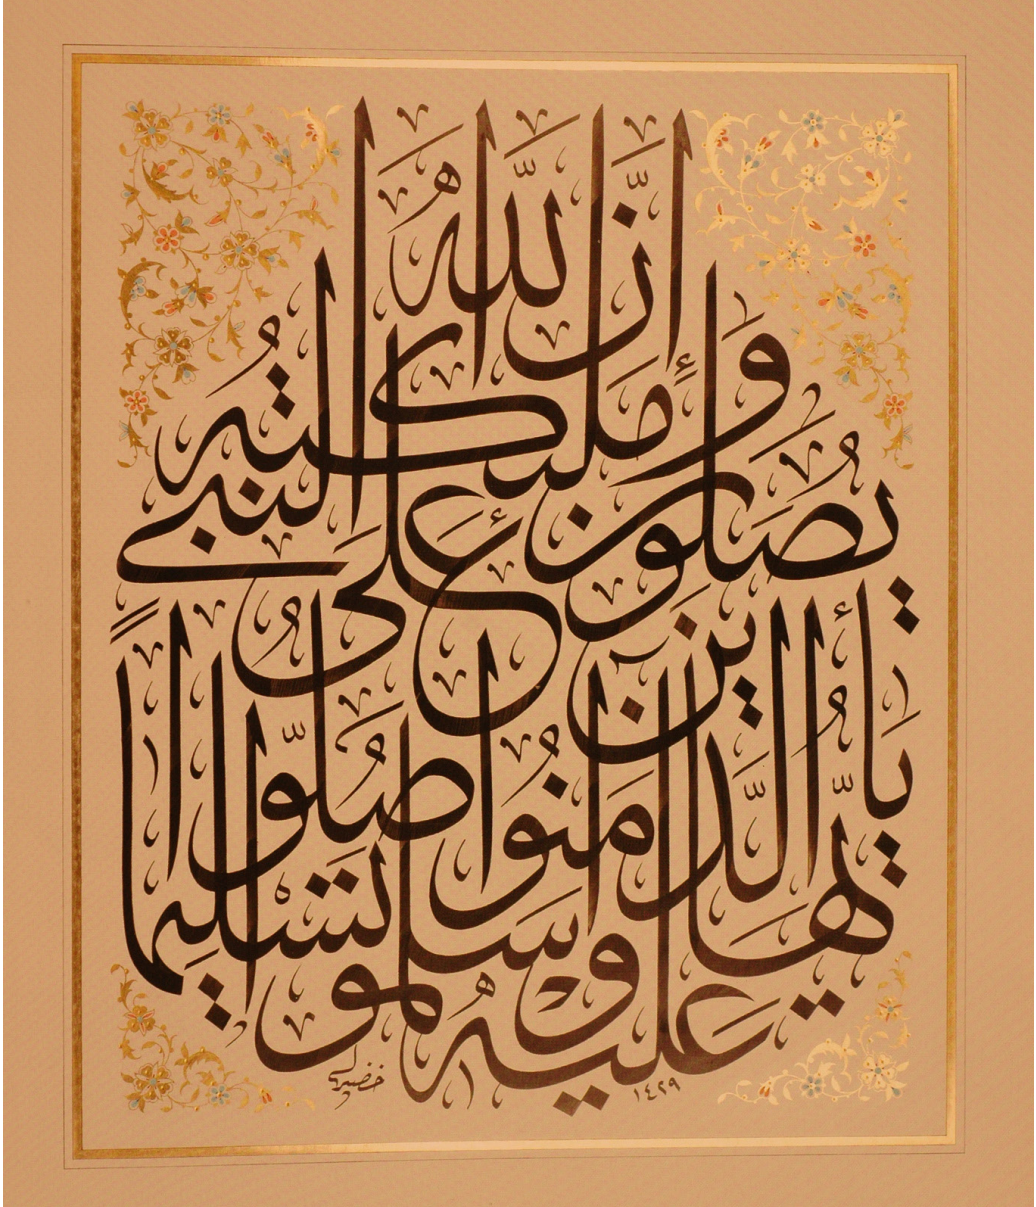 إن الله
وملئكته
يصلون على النبي
يأيها الذين ءامنوا صلوا
عليه وسلموا تسليما
١٤٢٩